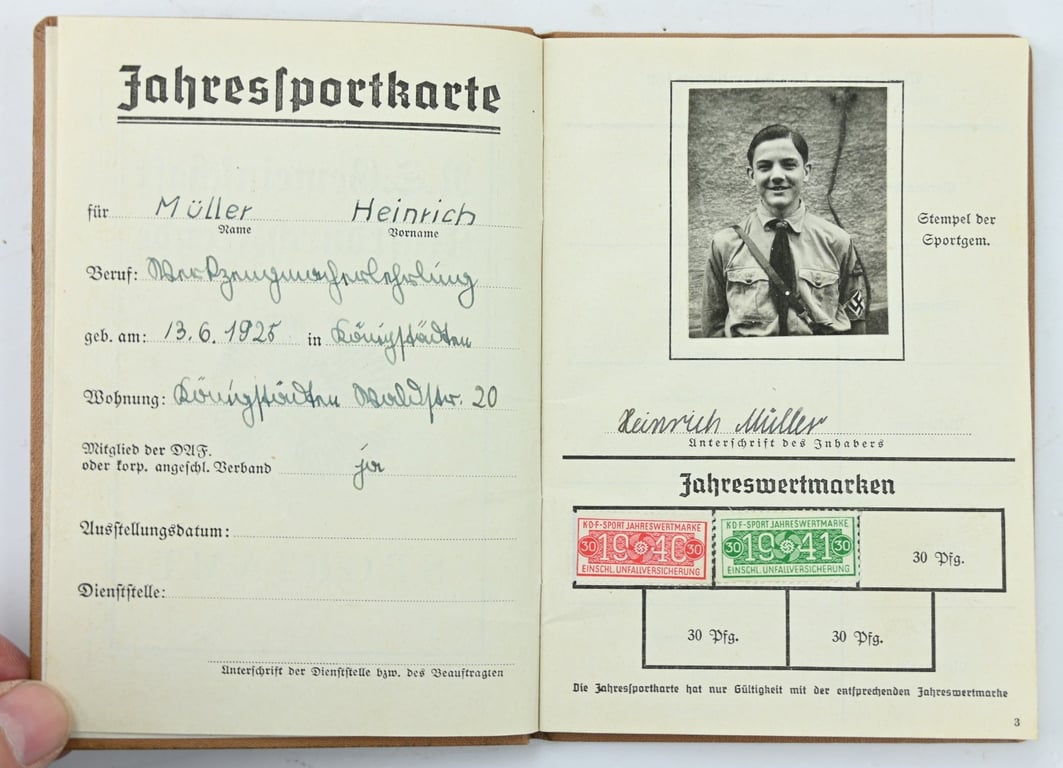 Jahressportkarte
für Müller Heinrich
Name Vorname
Beruf: Werkzeugmacherlehrling
geb. am: 13.6.1925 in Königstädten
Wohnung: Königstädten Waldstr. 20
Mitglied der DAF.
oder korp. angeschl. Verband ja
Ausstellungsdatum:
Dienststelle:
Unterschrift der Dienststelle bzw. des Beauftragten
Stempel der
Sportgem.
Heinrich Müller
Unterschrift des Inhabers
Jahreswertmarken
KDF-SPORT JAHRESWERTMARKE
30 1940 30
EINSCHL. UNFALLVERSICHERUNG
KDF-SPORT JAHRESWERTMARKE
30 1941 30
EINSCHL. UNFALLVERSICHERUNG
30 Pfg.
30 Pfg. 30 Pfg.
Die Jahressportkarte hat nur Gültigkeit mit der entsprechenden Jahreswertmarke
3